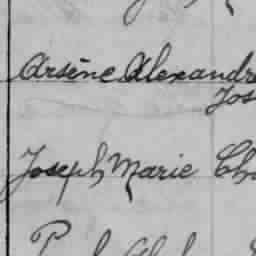 Arsène Alexandre
Jos
Joseph Marie Ch